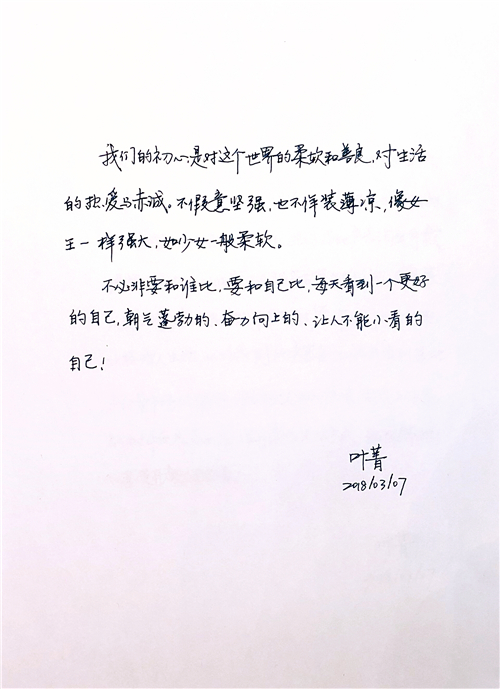 我们的初心是对这个世界的柔软和善良,对生活
的热爱与赤诚。不假意坚强,也不佯装薄凉,像女
王一样强大,如少女一般柔软。
不必非要和谁比,要和自己比,每天看到一个更好
的自己,朝气蓬勃的、奋力向上的、让人不能小看的
自己!
叶菁
2018/03/07